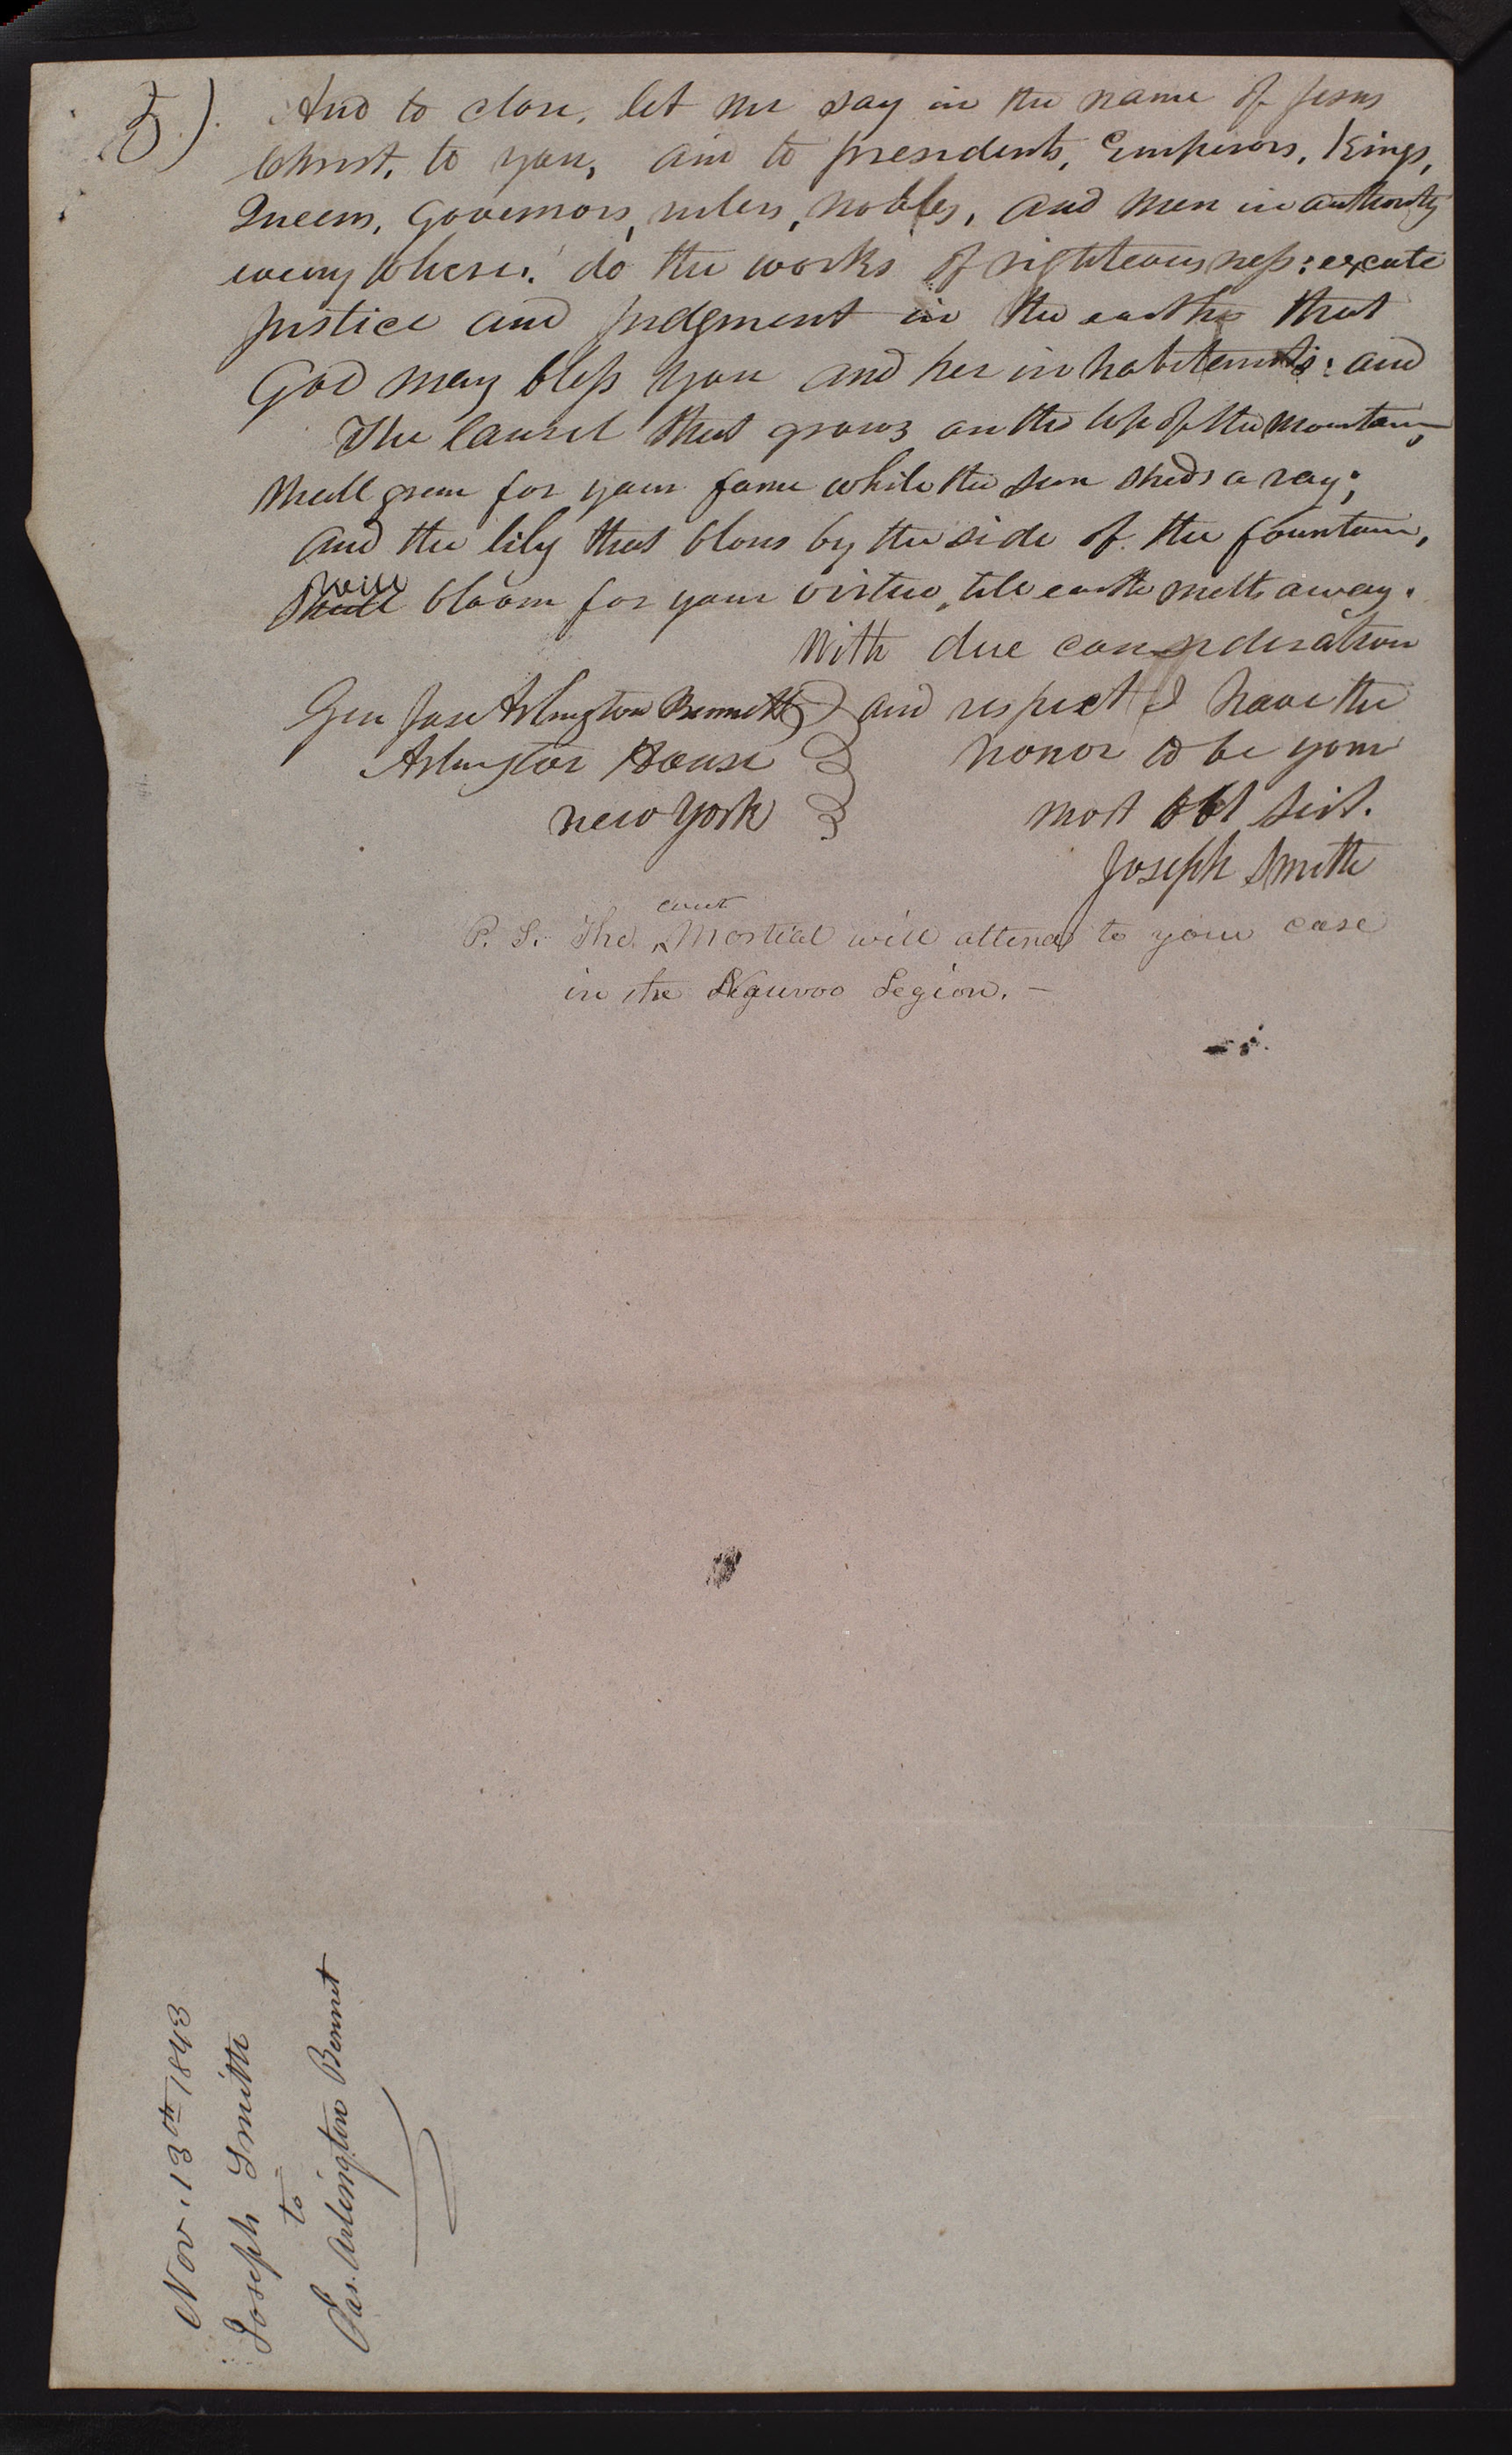 5). And to close, let me say in the name of Jesus
Christ, to you, and to presidents, Emperors, Kings,
Queens, Governors, rulers, nobles, and men in authority
every where: do the works of righteousness: excute
justice and judgment in the earth that
God may bless you and her inhabitants: and
The laurel that grows on the top of the mountain,
Shall green for your fame while the sun sheds a ray;
And the lily that blows by the side of the fountain,
Shall will bloom for your virtue, till earth melts away.
With due consideration
and respect I have the
honor to be your
most obt servt.
Joseph Smith
Gen Jas Arlington Bennett
Arlington House
New York
P. S. The court Martial will attend to your case
in the Nauvoo Legion. –
Nov. 13th 1843
Joseph Smith
to
Jas. Arlington Bennet